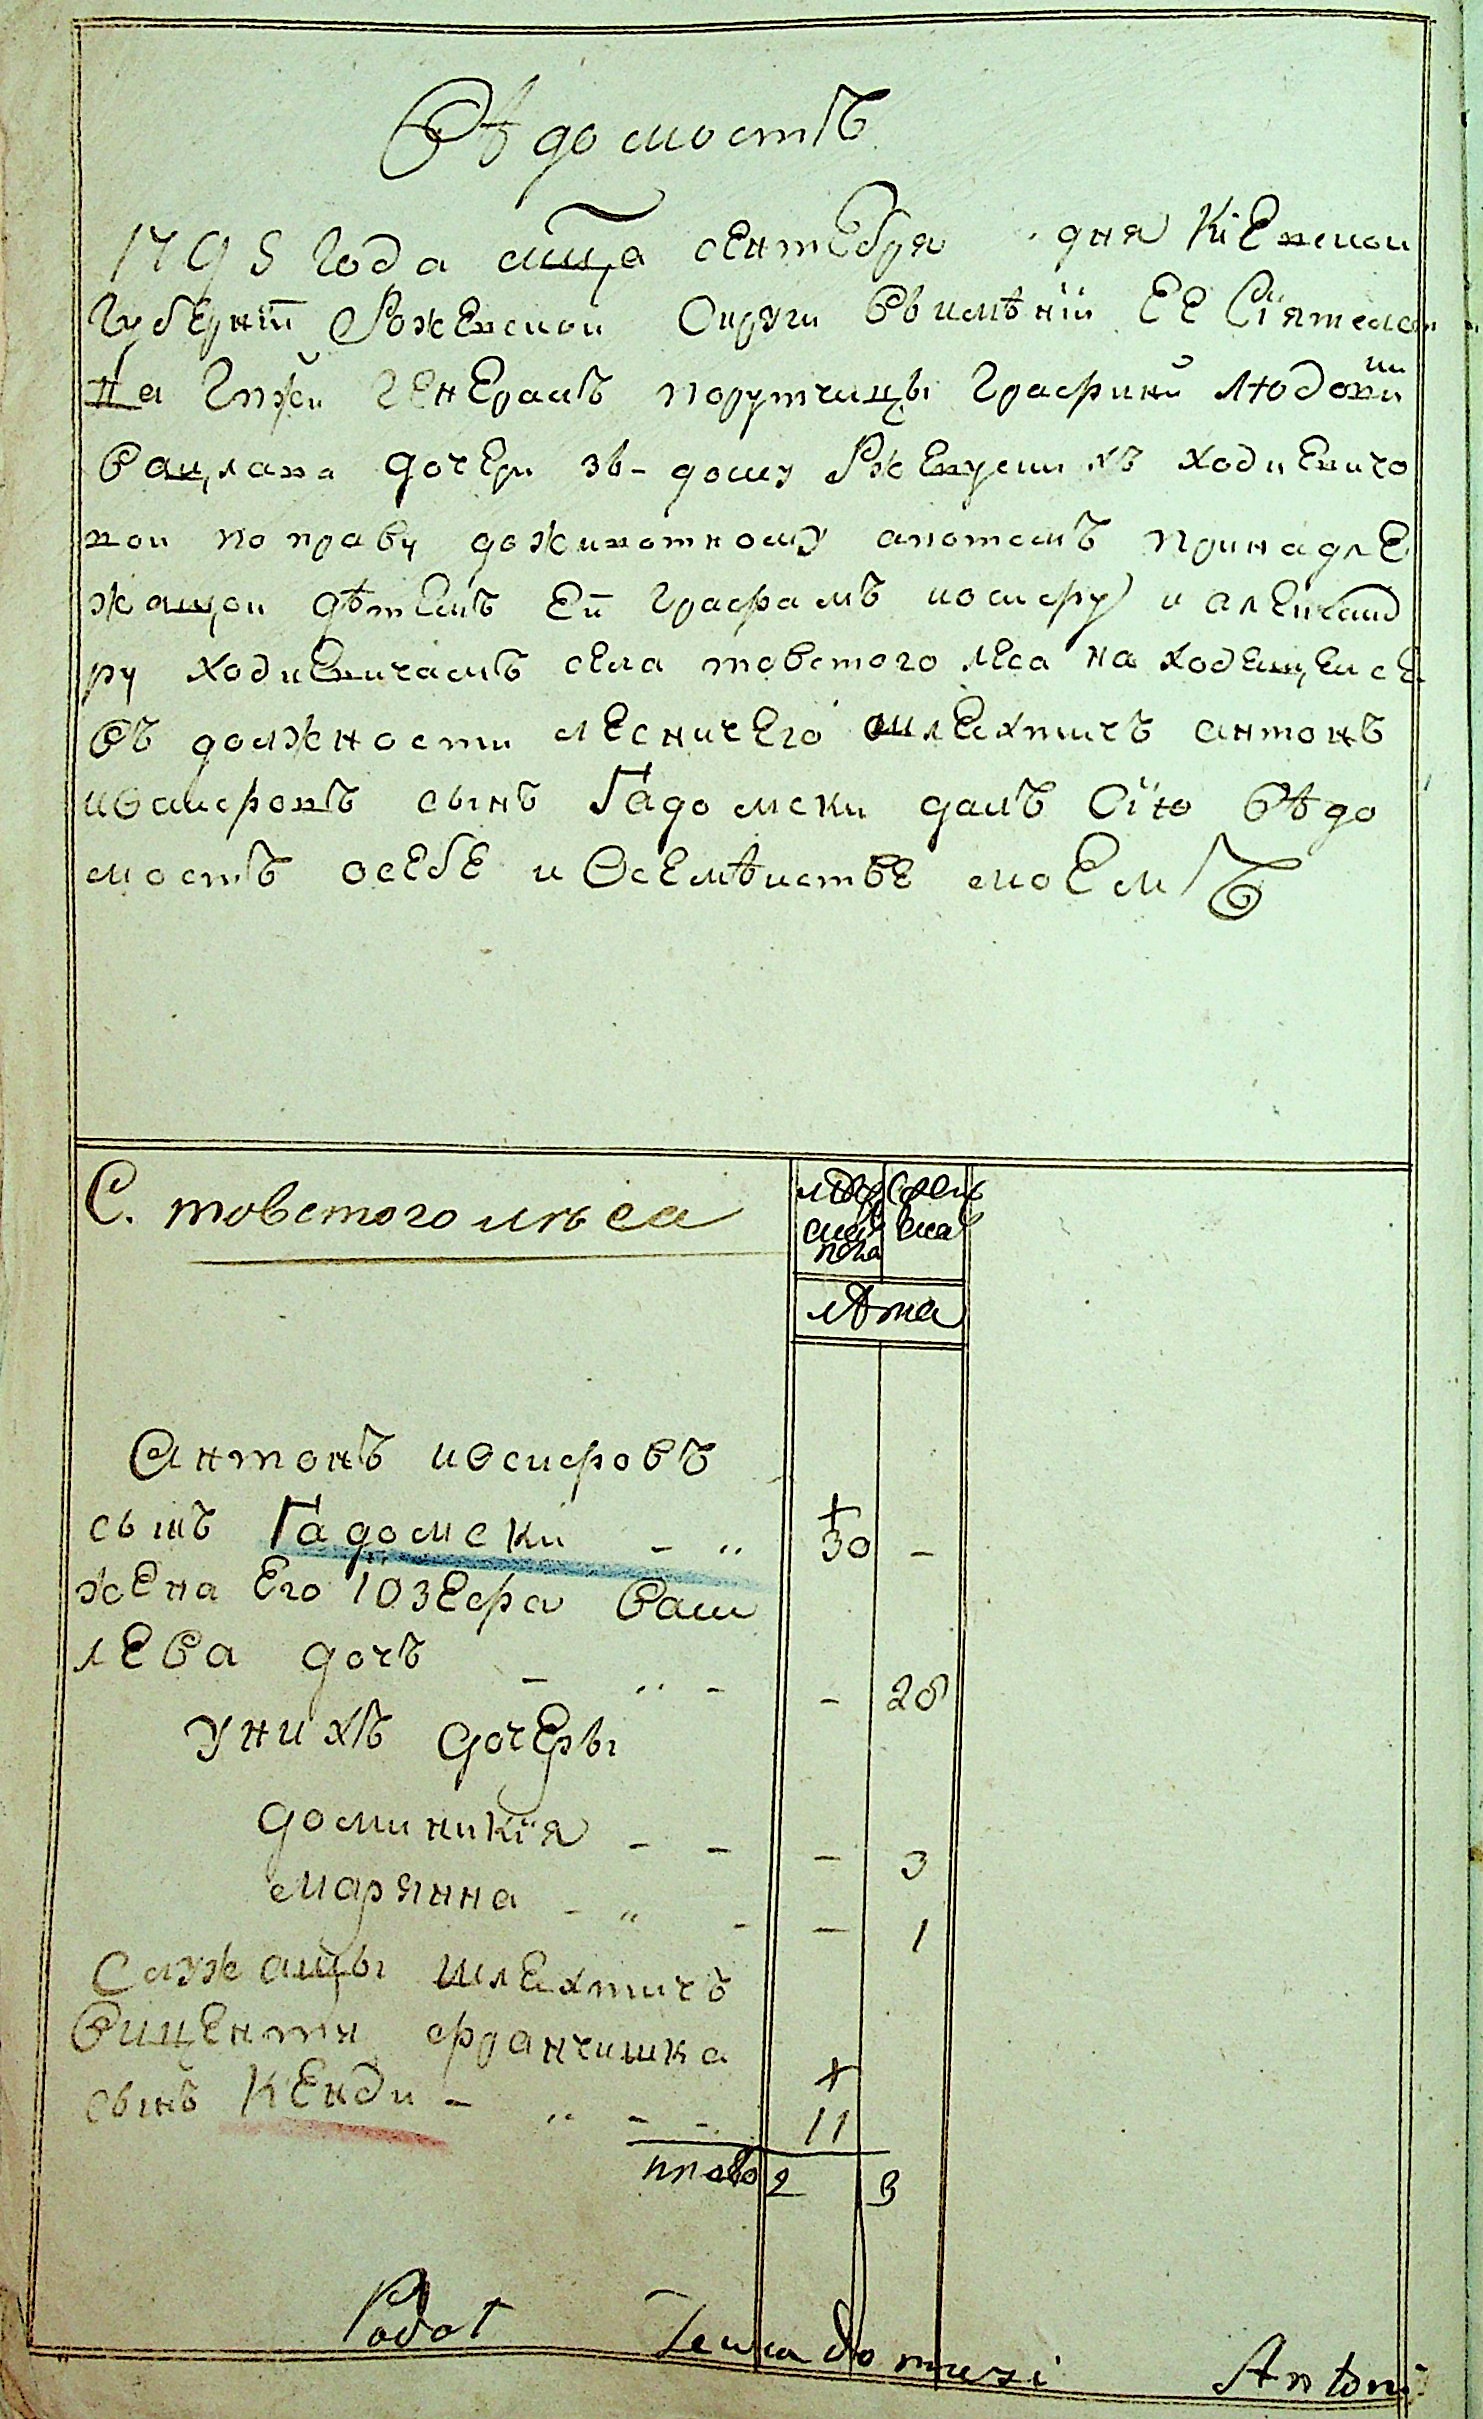 Вѣдомость
1795 года мца сентебря дня Кіевской
Губерніи Овруцкой Округи въ имѣніи ЕЕ Сіятелст
на Гпжи генералъ порутчицы Графини Людовики
Вацлава дочери зъ дому Ржевускихъ ходкевичо
вой по праву доживотному апотомъ принадле
жащой дѣтемъ Ей Графамъ иосифу и александ
ру ходкевичамъ села товстого леса находещейсе
въ должности лесничего шлехтичъ антонъ
иосифовъ сынъ Гадомски далъ Сію вѣдо
мость осебе и Осемѣистве моемъ
С. товстого лѣса
мужеска пола
женска
лѣта
Антонъ иосифовъ
сынъ Гадомски - „ 30 -
жена Его Юзефа Васи
лева дочь - „ - - 28
унихъ дочеры
доминикія - - - 3
марянна - „ - - 1
Служащы шлехтичъ
Вицентъ франчишка
сынъ Кенди - „ - - 11
итого 2 3
Antoni